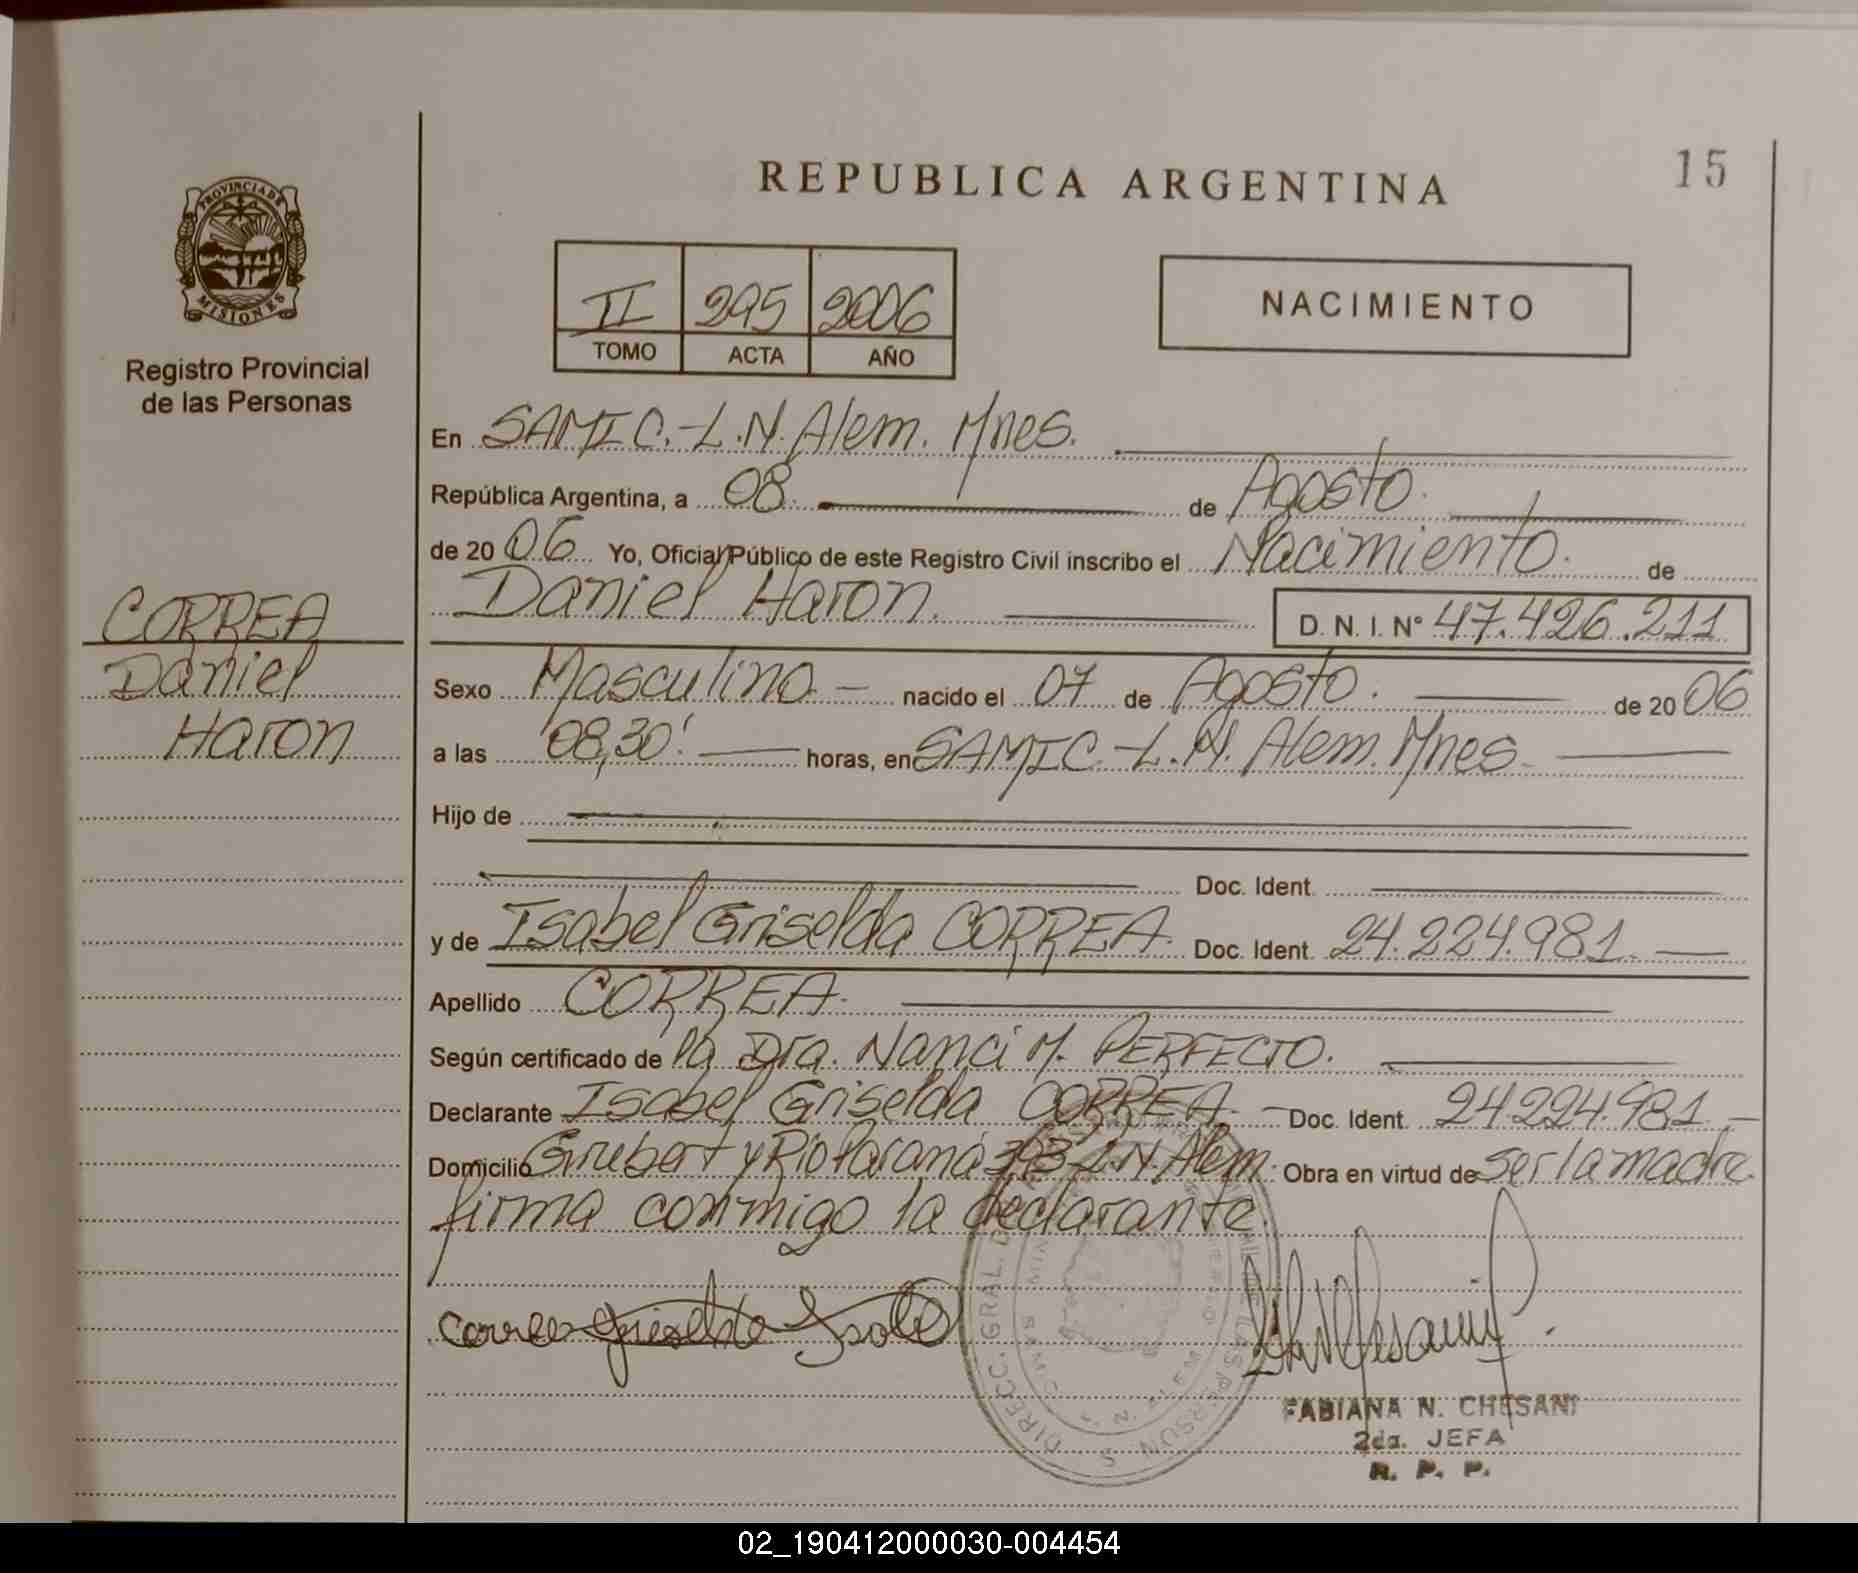 REPUBLICA ARGENTINA
15
PROVINCIA DE
MISIONES
Registro Provincial
de las Personas
II 295 2006
TOMO ACTA AÑO
NACIMIENTO
En SAMIC.-L.N.Alem. Mnes.
República Argentina, a 08. de Agosto.
de 20 06 Yo, Oficial Público de este Registro Civil inscribo el Nacimiento. de
Daniel Haron. D. N. I. N° 47.426.211
CORREA
Daniel
Haron
Sexo Masculino - nacido el 07 de Agosto. de 20 06
a las 08,30' horas, en SAMIC.-L.N. Alem. Mnes.
Hijo de
Doc. Ident.
y de Isabel Griselda CORREA. Doc. Ident. 24.224.981.
Apellido CORREA.
Según certificado de la Dra. Nanci M. PERFECTO.
Declarante Isabel Griselda CORREA. - Doc. Ident. 24.224.981.-
Domicilio Grubert y Rio Paraná 393-L.N. Alem. Obra en virtud de ser la madre.
firma conmigo la declarante.
Correa Griselda Isabel
FABIANA N. CHESANI
2da. JEFA
R. P. P.
02_190412000030-004454